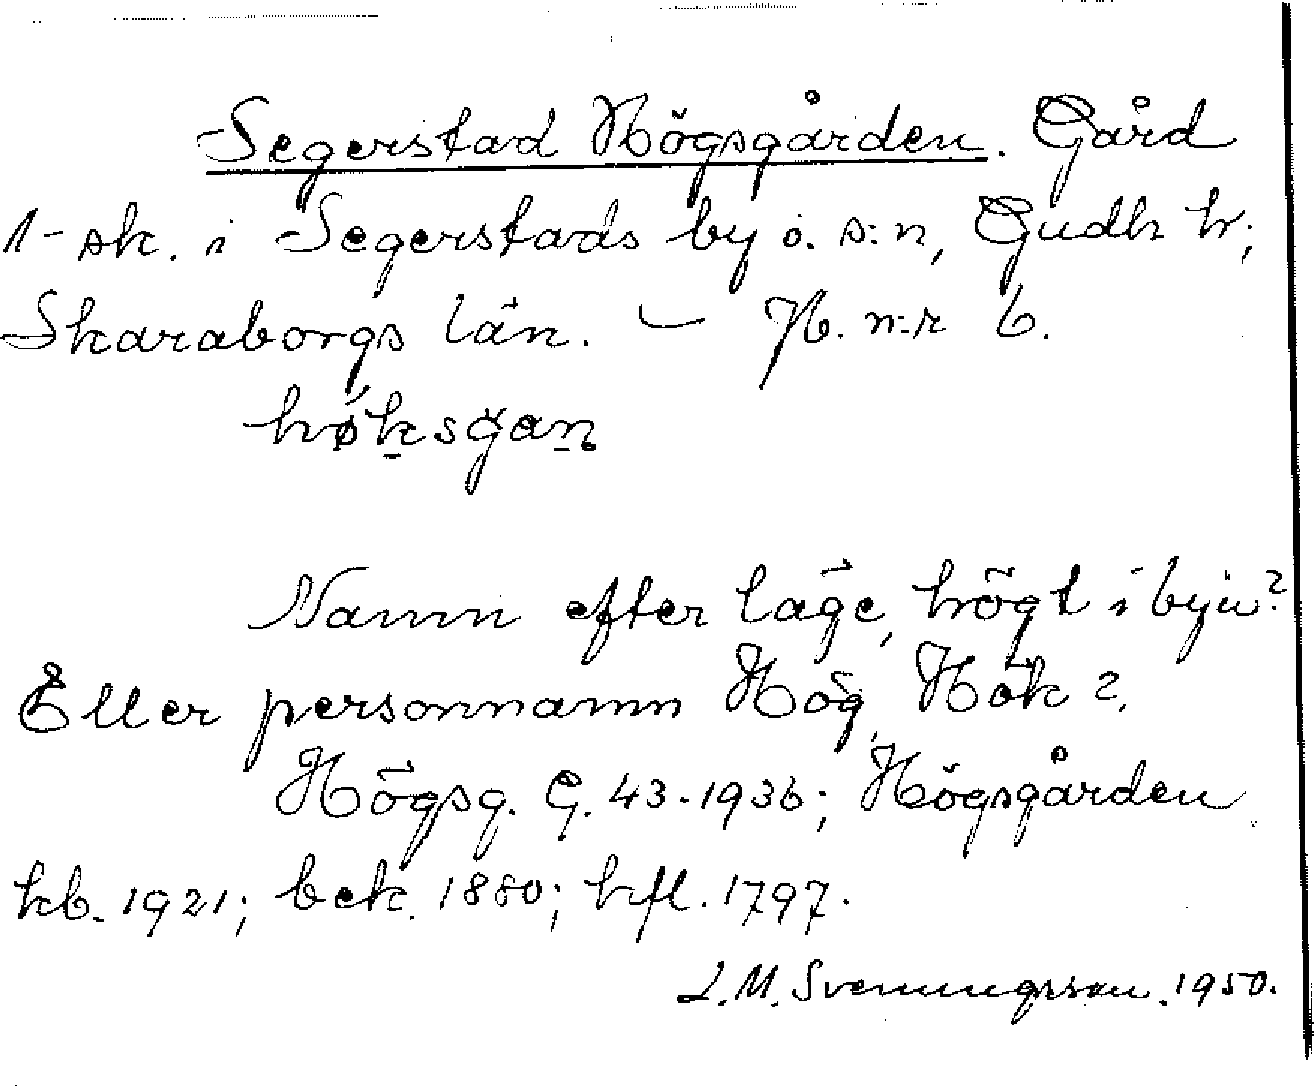 Segerstad Högsgården. Gård
1-sk. i Segerstads by o. s:n, Gudh hr;
Skaraborgs län. – H. n:r 6.
høksgan
Namn efter läge, högt i byn?
Eller personnamn Hög, Hök?
Högsg. G. 43-1936; Högsgården
kb. 1921; bek. 1880; hfl. 1797.
L. M. Svenungsson. 1950.